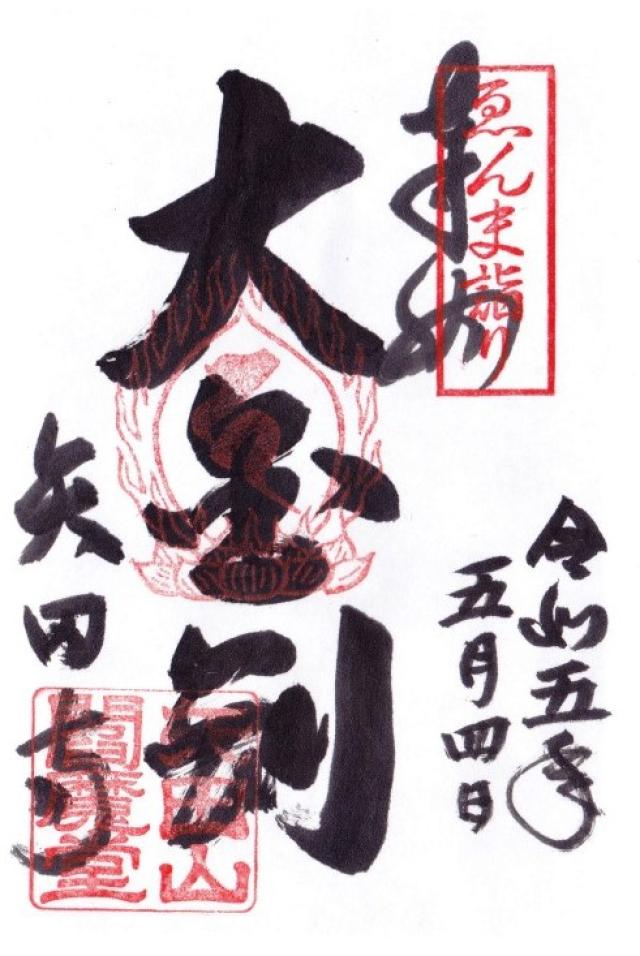 ゑんま詣り
奉拝
令和五年
五月四日
大
矢田寺
矢田山
閻魔堂